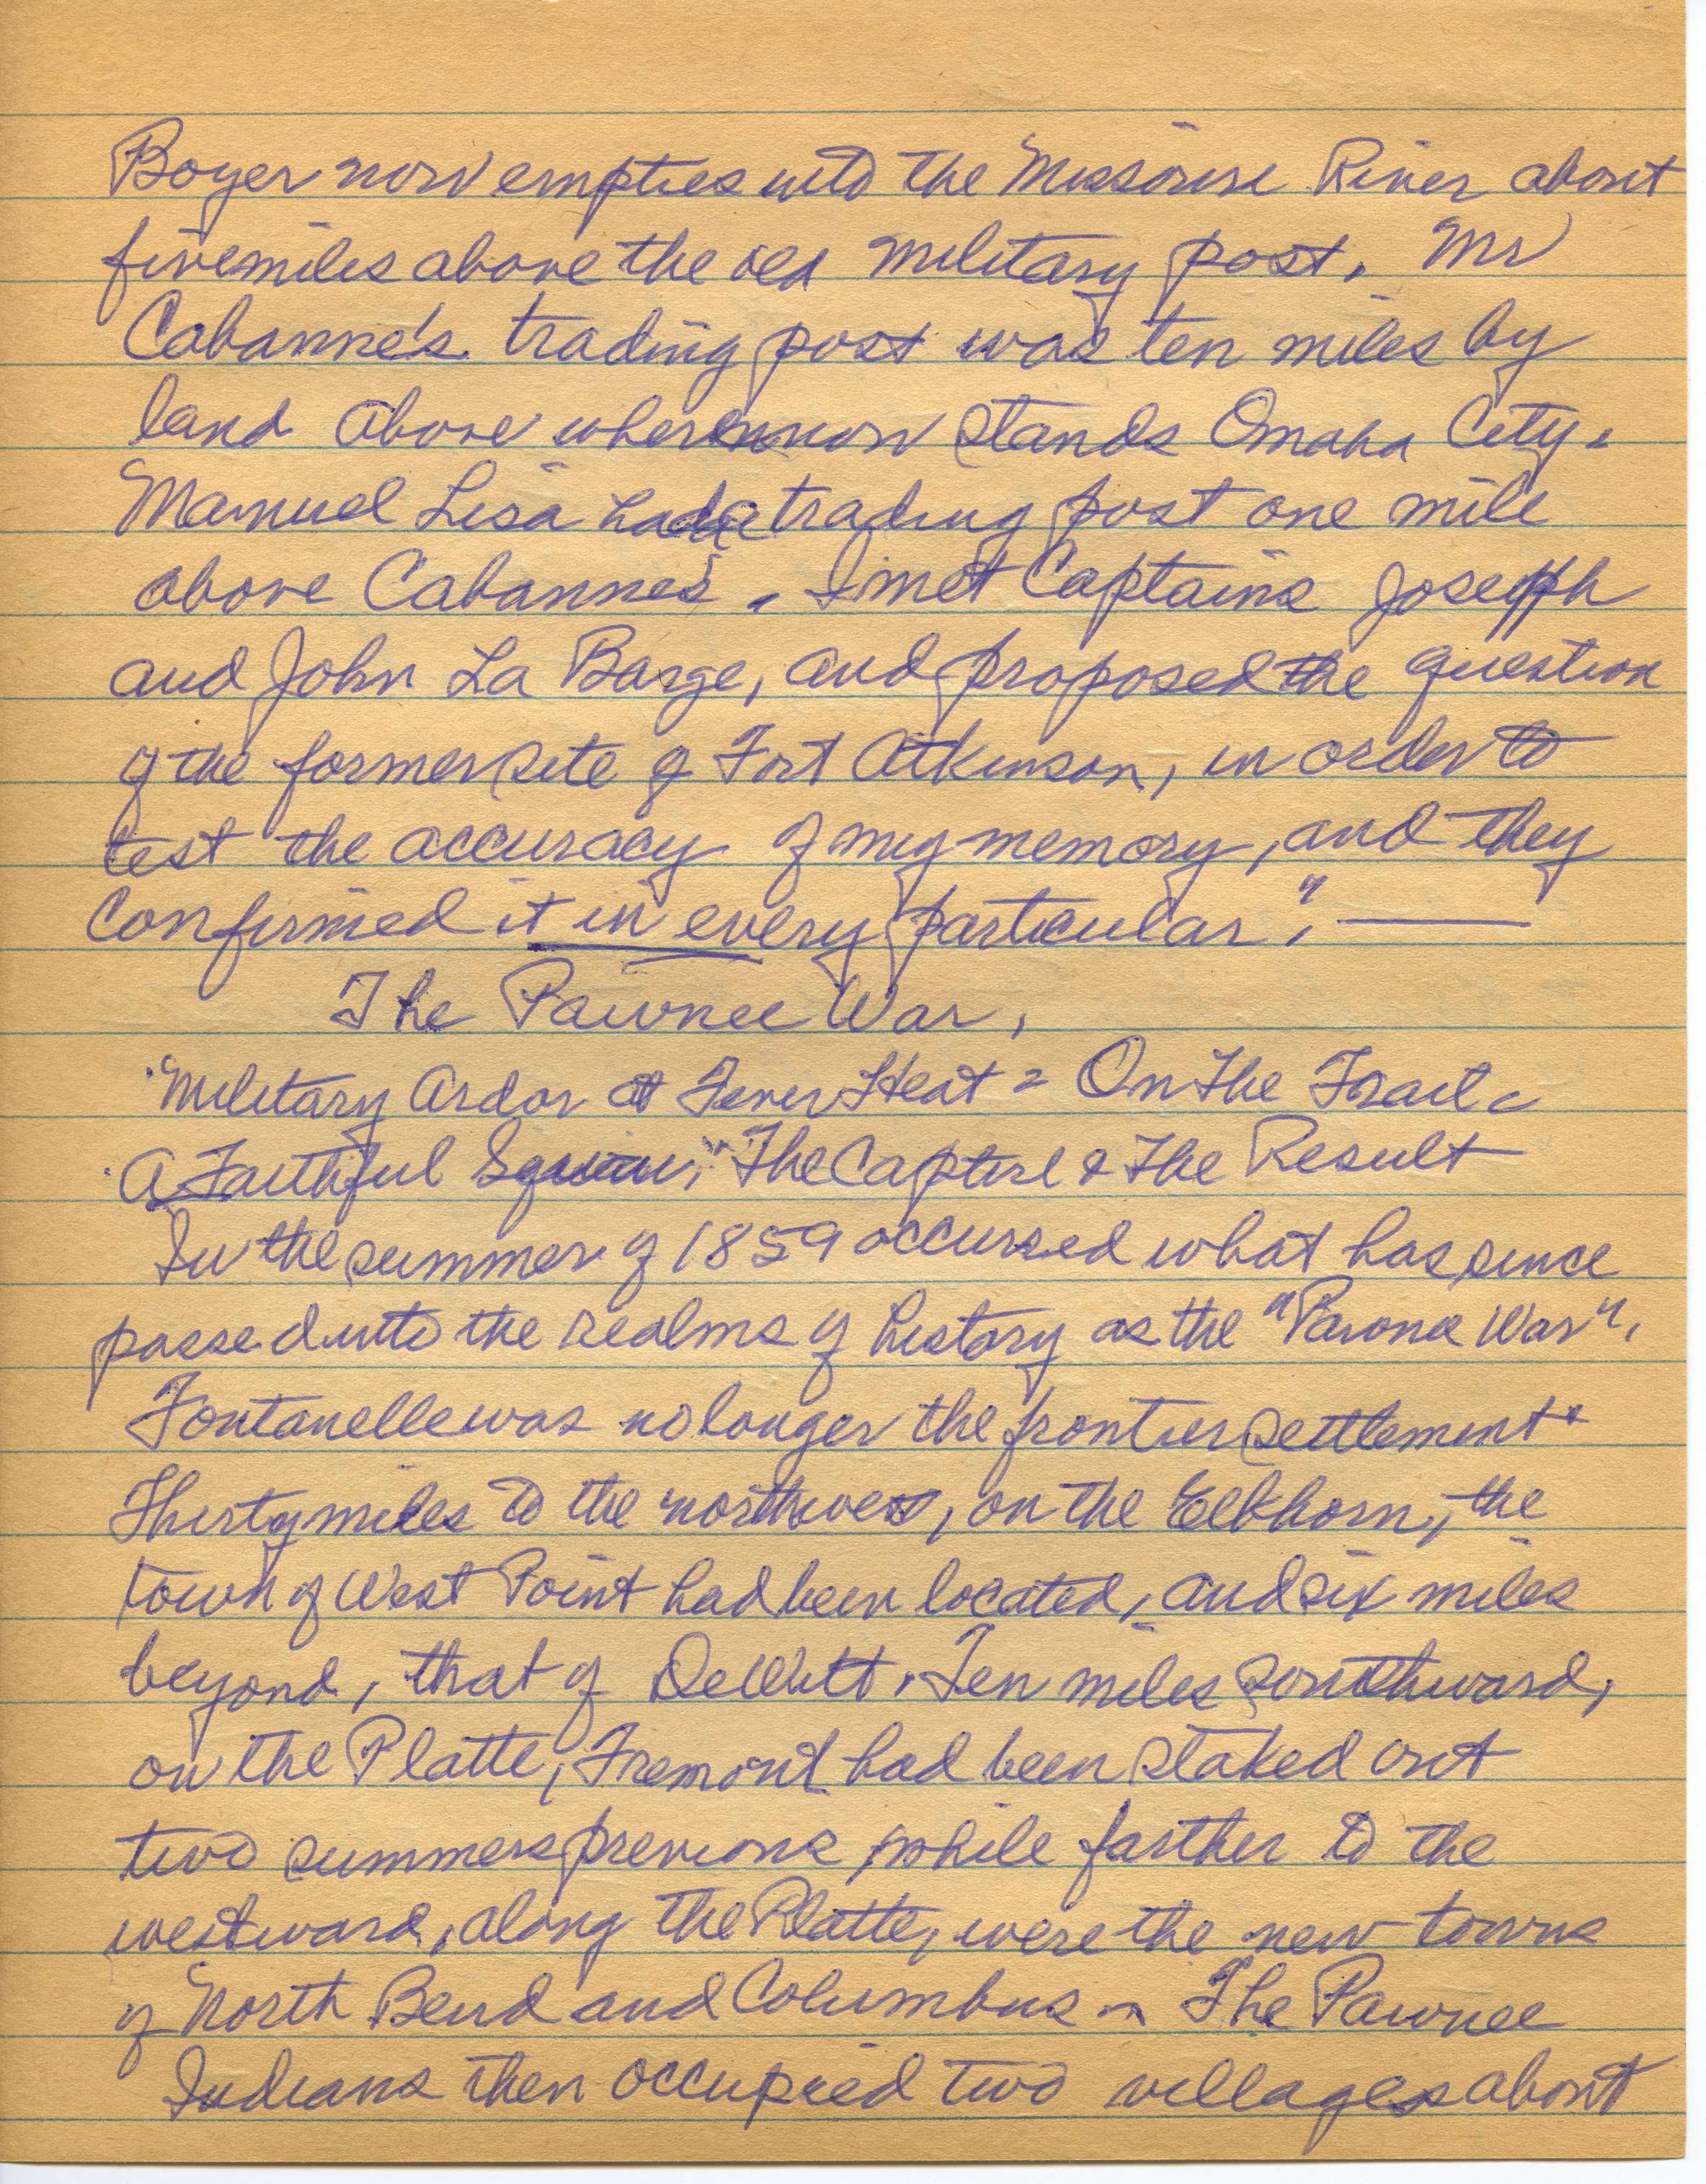 Boyer now empties into the Missouri River about
five miles above the old military post. Mr
Cabanne's trading post was ten miles by
land above where now stands Omaha City.
Manuel Lisa had a trading post one mile
above Cabanne's. I met Captains Joseph
and John La Barge, and proposed the question
of the former site of Fort Atkinson, in order to
test the accuracy of my memory, and they
confirmed it in every particular," —
The Pawnee War,
Military Ardor at Fever Heat - On The Trail -
A Faithful Squaw, "The Capture & The Result
In the summer of 1859 occurred what has since
passed into the realms of history as the "Pawnee War",
Fontanelle was no longer the frontier settlement.
Thirty miles to the northwest, on the Elkhorn, the
town of West Point had been located, and six miles
beyond, that of DeWitt. Ten miles southward,
on the Platte, Fremont had been staked out
two summers previous while farther to the
westward, along the Platte, were the new towns
of North Bend and Columbus - The Pawnee
Indians then occupied two villages about